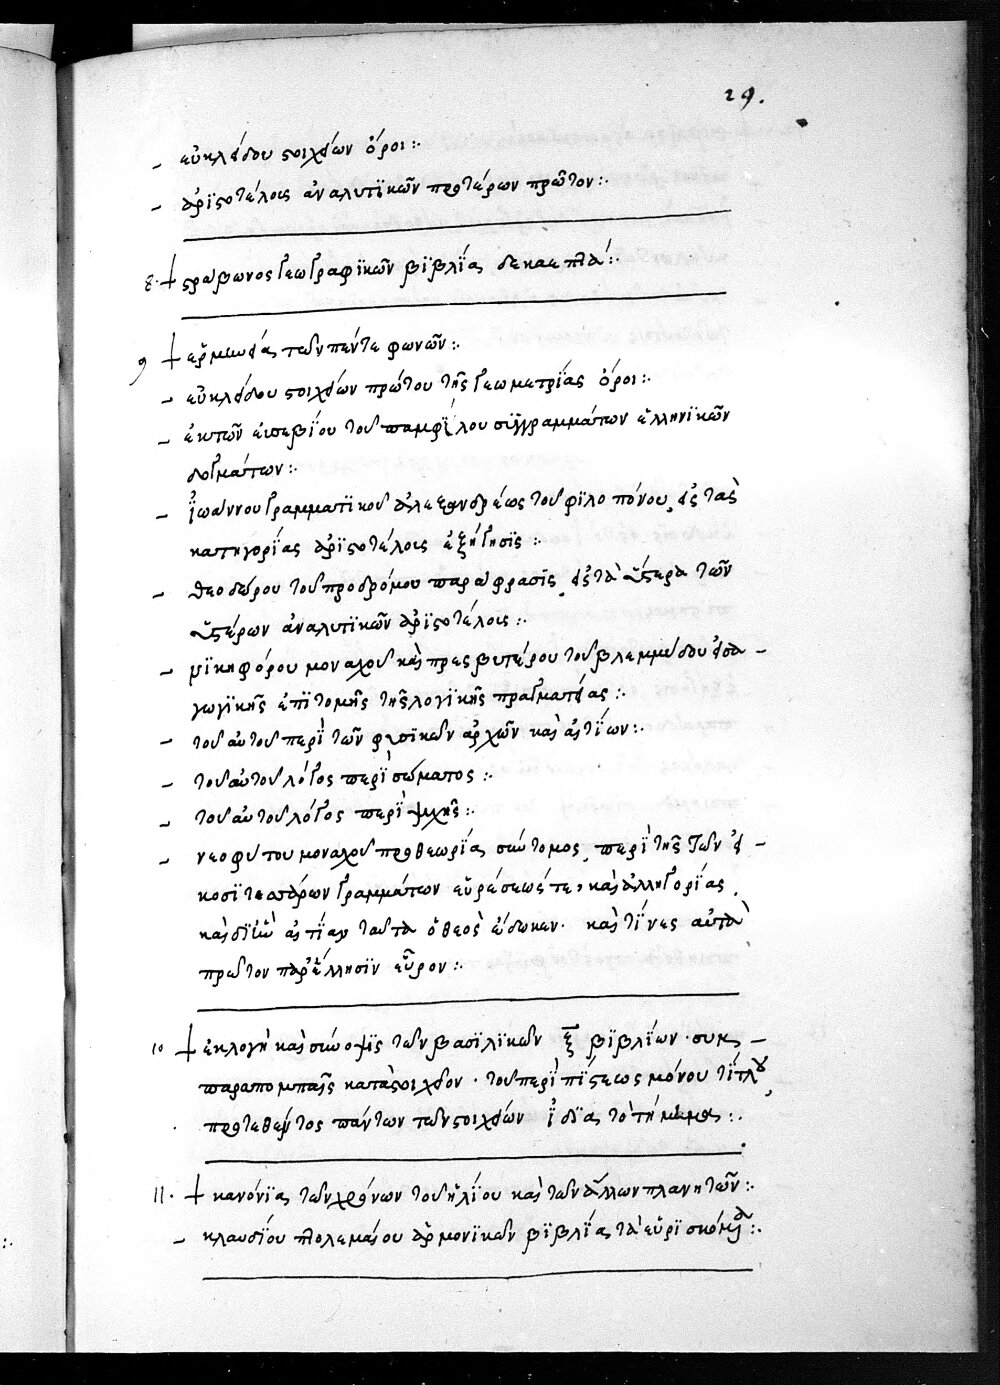 29.
- εὐκλείδου στοιχείων ὅροι :.
- ἀριστοτέλους ἀναλυτικῶν προτέρων πρῶτον :.
8. + στράβωνος γεωγραφικῶν βιβλία δεκαεπτά :.
9 + ἑρμηνεία τῶν πέντε φωνῶν :.
- εὐκλείδου στοιχείων πρώτου τῆς γεωμετρίας ὅροι :.
- ἐκ τῶν εὐσεβίου τοῦ παμφίλου συγγραμμάτων ἑλληνικῶν
δογμάτων :.
- ἰωάννου γραμματικοῦ ἀλεξανδρέως τοῦ φιλοπόνου, εἰς τὰς
κατηγορίας ἀριστοτέλους ἐξήγησις :.
- θεοδώρου τοῦ προδρόμου παράφρασις, εἰς τὰ ὕστερα τῶν
ὑστέρων ἀναλυτικῶν ἀριστοτέλους :.
- νικηφόρου μοναχοῦ καὶ πρεσβυτέρου τοῦ βλεμμύδου εἰσα -
γωγικῆς ἐπιτομῆς τῆς λογικῆς πραγματείας :.
- τοῦ αὐτοῦ περὶ τῶν φυσικῶν ἀρχῶν καὶ αἰτίων :.
- τοῦ αὐτοῦ λόγος περὶ σώματος :.
- τοῦ αὐτοῦ λόγος περὶ ψυχῆς :.
- νεοφύτου μοναχοῦ προθεωρία σύντομος, περὶ τῆς τῶν εἰ -
κοσιτεσσάρων γραμμάτων εὑρέσεώς τε, καὶ ἀλληγορίας,
καὶ δι' ἣν αἰτίαν ταῦτα ὁ θεὸς ἔδωκεν· καὶ τίνες αὐτὰ
πρῶτον παρ' ἕλλησιν εὗρον :.
10 + ἐκλογὴ καὶ σύνοψις τῶν βασιλικῶν ξ βιβλίων· σὺν -
παραπομπαῖς κατὰ στοιχεῖον· τοῦ περὶ πίστεως μόνου τίτλου,
προτεθέντος πάντων τῶν στοιχείων ἰδίᾳ :.
11. + κανόνια τῶν χρόνων τοῦ ἡλίου καὶ τῶν ἄλλων πλανητῶν :.
- κλαυδίου πτολεμαίου ἁρμονικῶν βιβλία τὰ εὑρισκόμενα :.